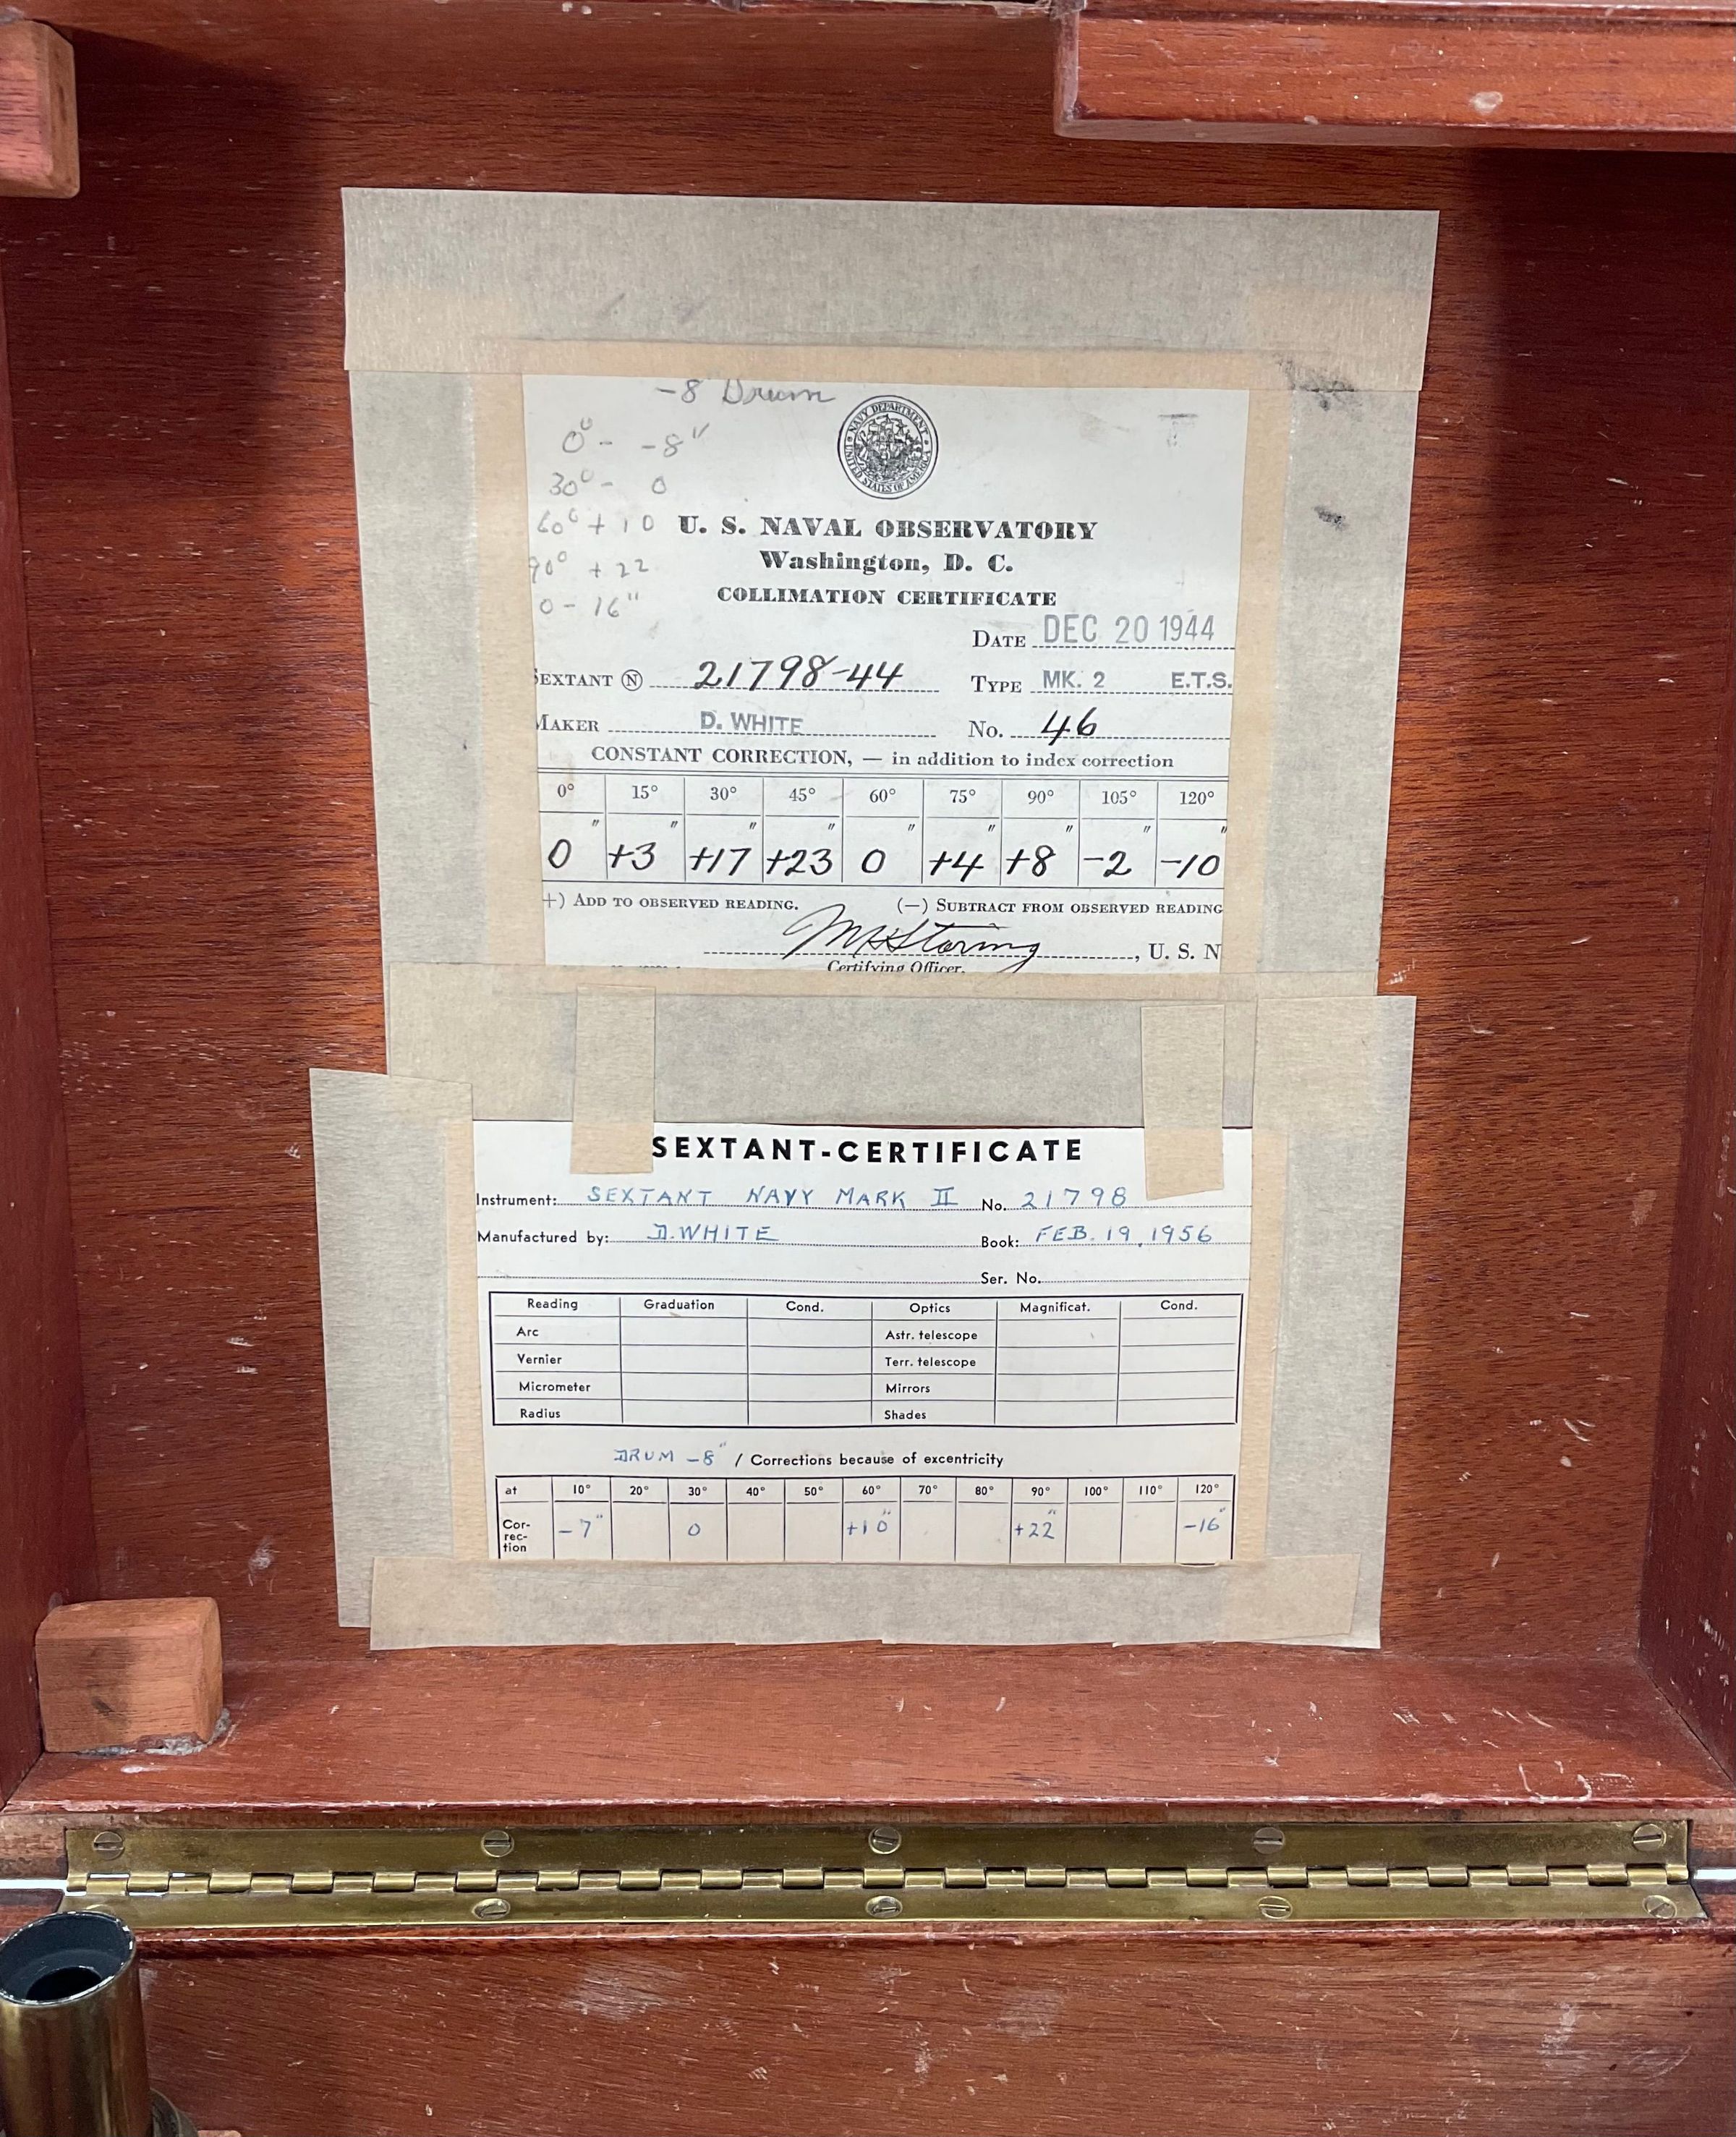 -8 Drum
0° - -8"
30° - 0
60° + 10
90° + 22
0 - 16"
NAVY DEPARTMENT
UNITED STATES OF AMERICA
U. S. NAVAL OBSERVATORY
Washington, D. C.
COLLIMATION CERTIFICATE
DATE DEC 20 1944
SEXTANT Ⓝ 21798-44 TYPE MK. 2 E.T.S.
MAKER D. WHITE No. 46
CONSTANT CORRECTION, — in addition to index correction
0° 15° 30° 45° 60° 75° 90° 105° 120°
" " " " " " " " "
0 +3 +17 +23 0 +4 +8 -2 -10
+) ADD TO OBSERVED READING. (—) SUBTRACT FROM OBSERVED READING
, U. S. N
Certifying Officer.
SEXTANT-CERTIFICATE
Instrument: SEXTANT NAVY MARK II No. 21798
Manufactured by: D. WHITE Book: FEB. 19, 1956
Ser. No.
Reading Graduation Cond. Optics Magnificat. Cond.
Arc Astr. telescope
Vernier Terr. telescope
Micrometer Mirrors
Radius Shades
DRUM -8" / Corrections because of excentricity
at 10° 20° 30° 40° 50° 60° 70° 80° 90° 100° 110° 120°
Cor-
rec-
tion -7" 0 +10" +22" -16"